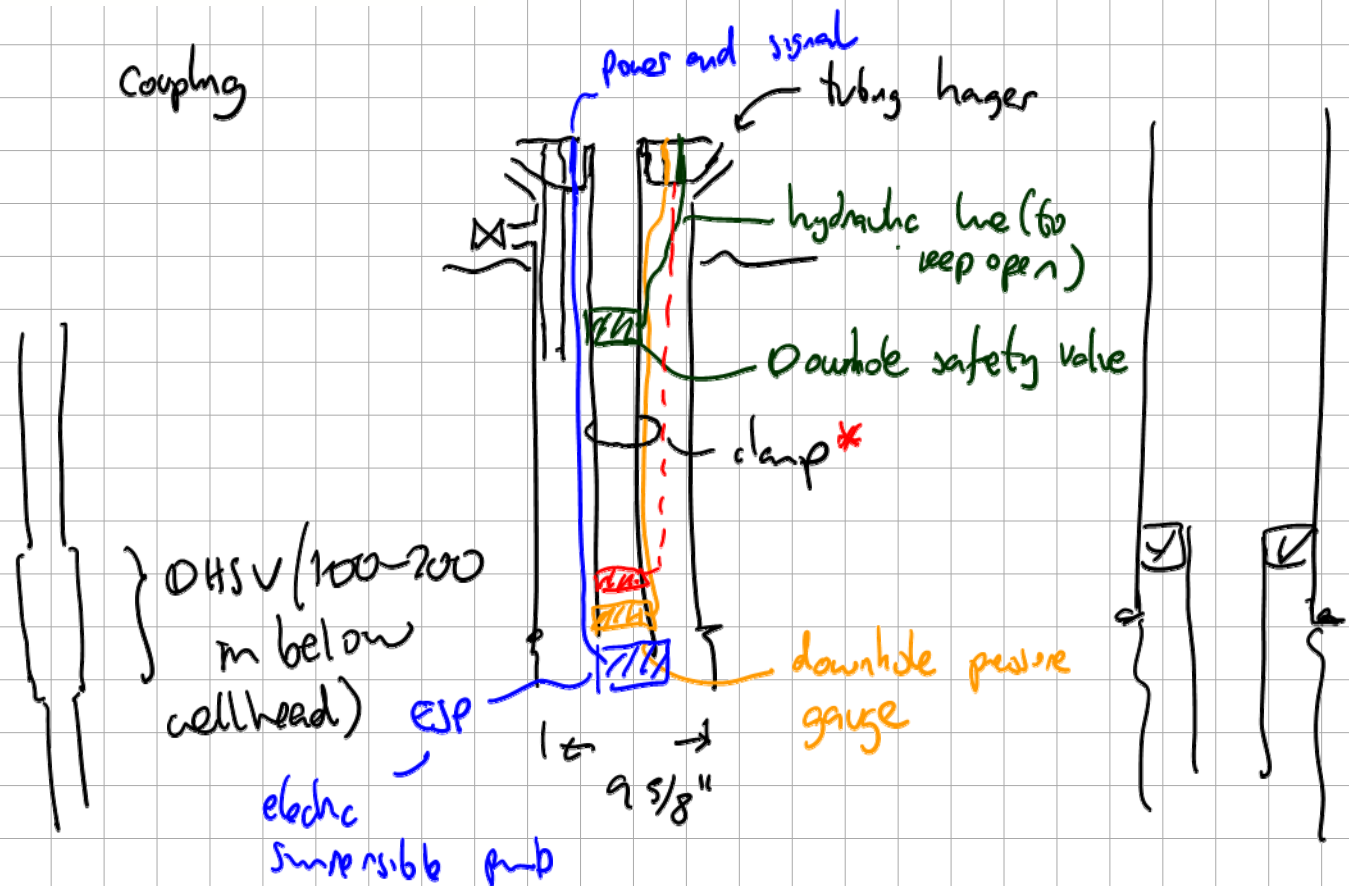 Coupling
power and signal
tubing hager
hydraulic line (to
keep open)
Downhole safety valve
clamp*
DHSV (100-200
m below
wellhead)
ESP
electric
submersible pumb
downhole pressure
gauge
9 5/8"